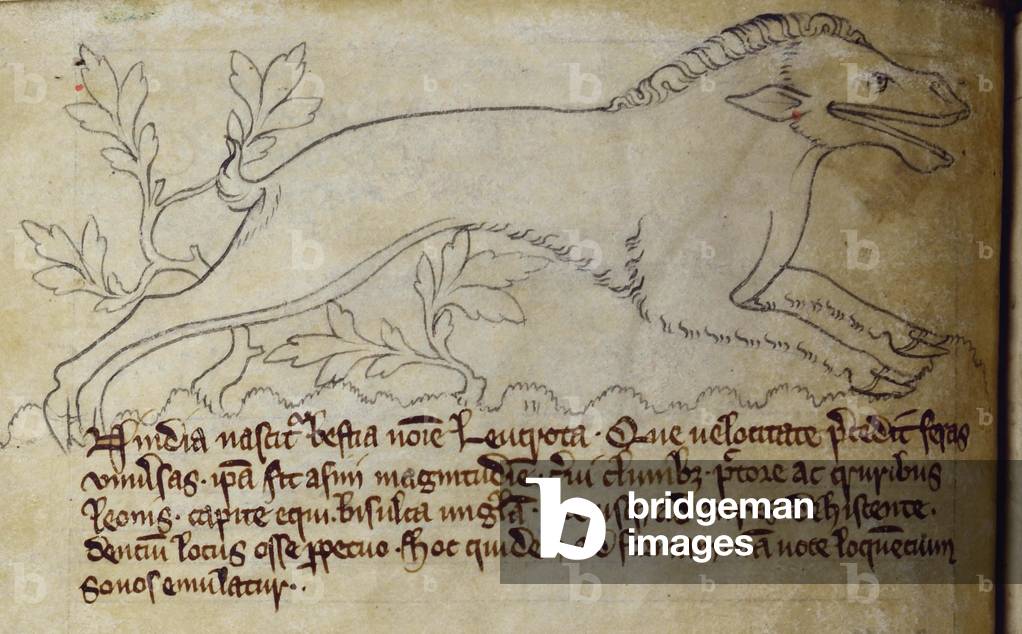 India nascitᵃ bestia noīe Leucrota · Que uelocitate p̄cedit feras
uniu̅sas · ip̄a sit asini magnitudīe · c̄ui clunibꝫ · p̄ctore ac cruribus
leonis · capite equi · bisulca ungla · dehiscente ·
dentiū locus osse ꝑpetuo · Hoc uoce loquēcium
sonos emulatur ··
bridgeman
images
b